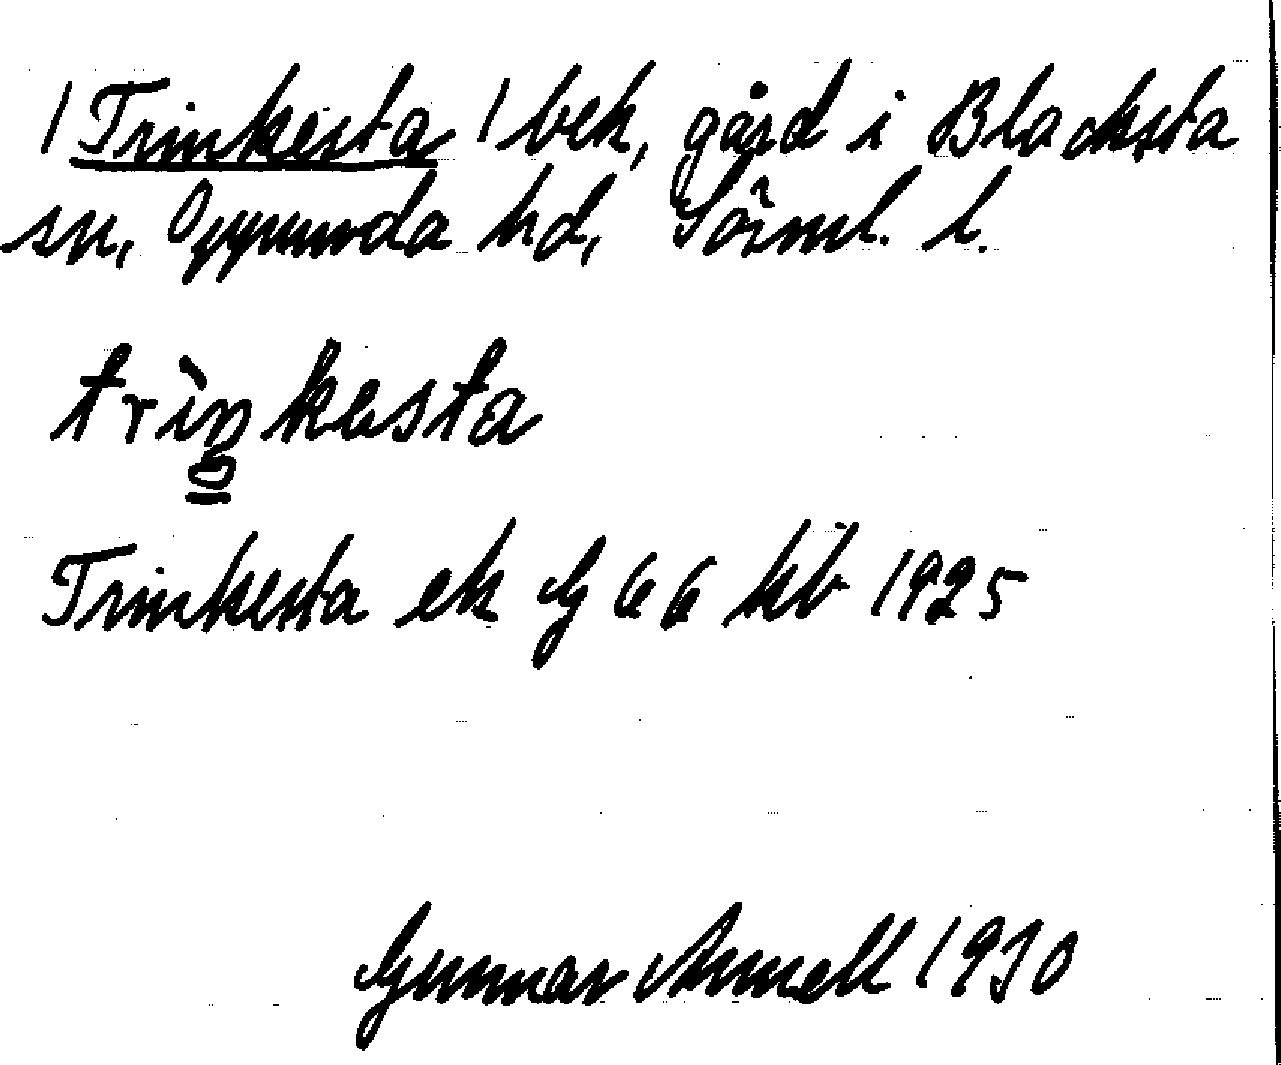 / Trinkesta / bek, gård i Blacksta
sn, Oppunda hd, Sörml. l.
trìŋkesta
Trinkesta ek G 66 kb 1925
Gunnar Amell 1930